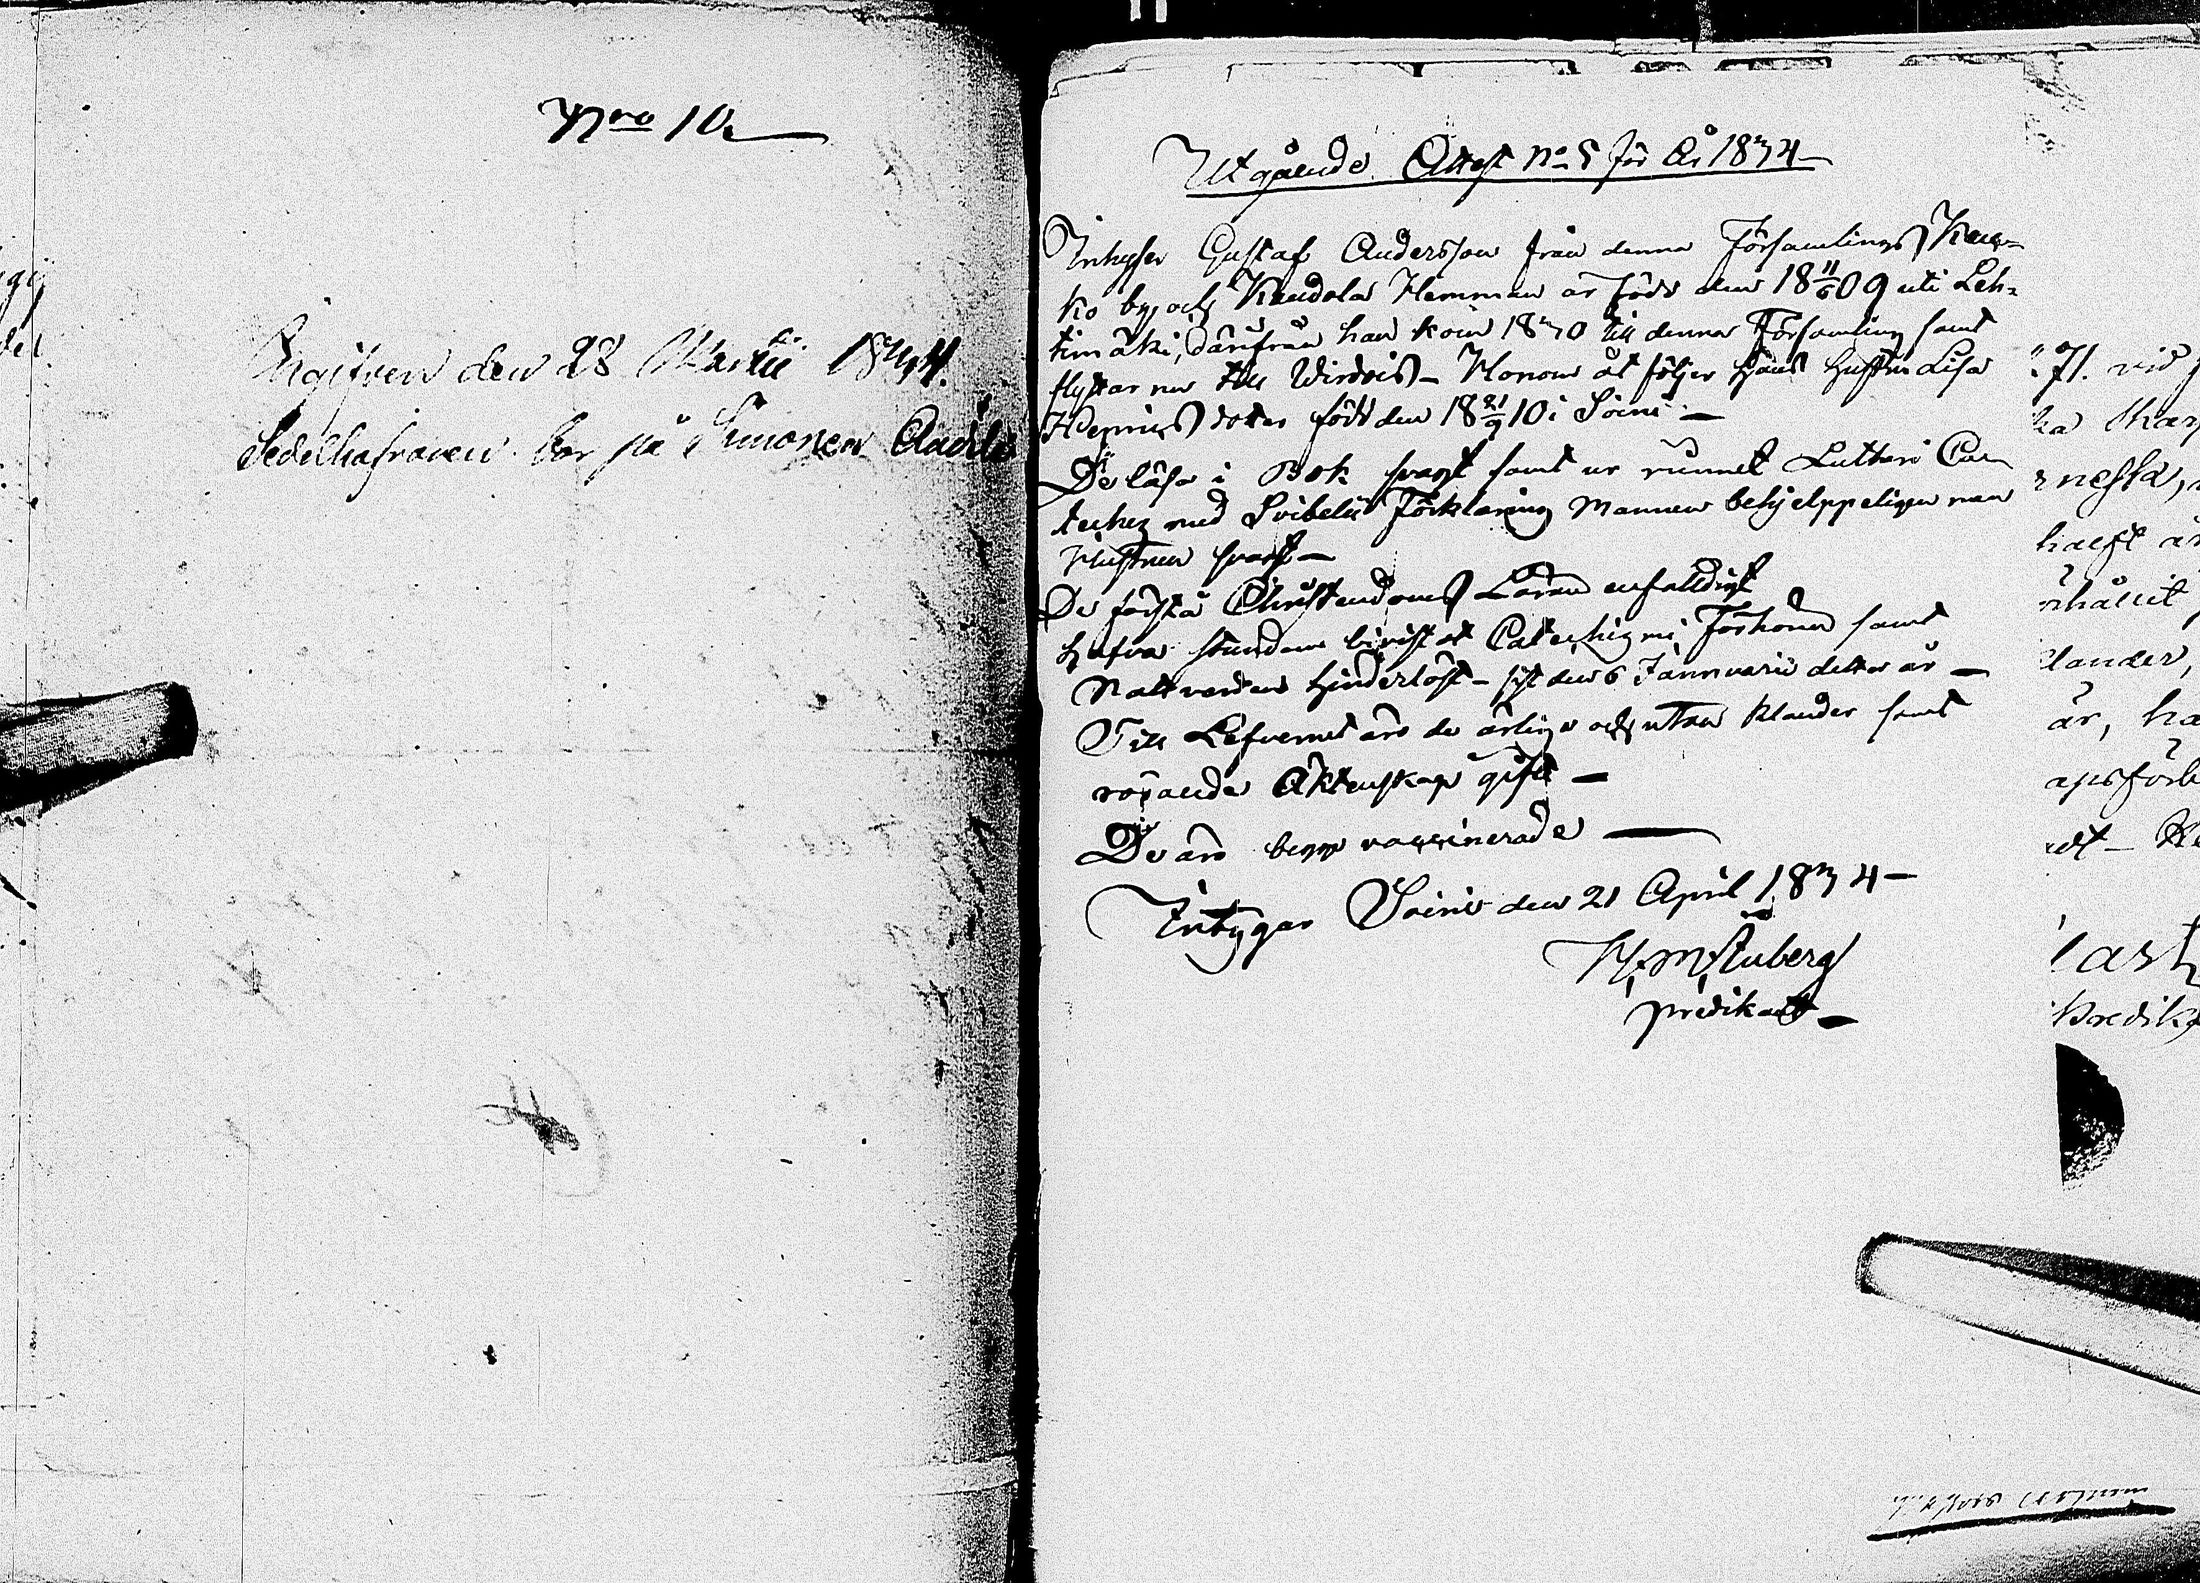 Nro 10.
Ingifven den 28 Martii 1844.
Sedelhafvaren bor på Simonen
Utgående Attest No 5 för År 1834
Inhyses Gustaf Andersson från denna Församlings Kuk-
ko by och Kandola Hemman är född den 18 11/6 09 uti Leh-
timäki, därifrån han kom 1830 till denna Församling samt
flyttar nu till Wirdois - Honom åt följer hans hustru Lisa
Henricsdotter född den 18 21/9 10 i Soini -
De läsa i Bok svagt samt ur minnet Lutheri Ca-
techez med Svibelii Förklaring Mannen behjelppeligen men
Hustrun svagt -
De förstå Christendoms Läran enfaldigt
hafva stundom bivistat Catechizmi Förhören samt
Nattvarden hinderlöst - sist den 6 Jannuarii detta år -
Till Lefvernet äro de ärliga och utan klander samt
rörande Äktenskap gifte -
De äro begge vaccinerade
Intygar Soini den 21 April 1834 -
H. M. Stuberg
predikant -
71. vid
ka
neska,
halft
lander,
är, ha
apsförb